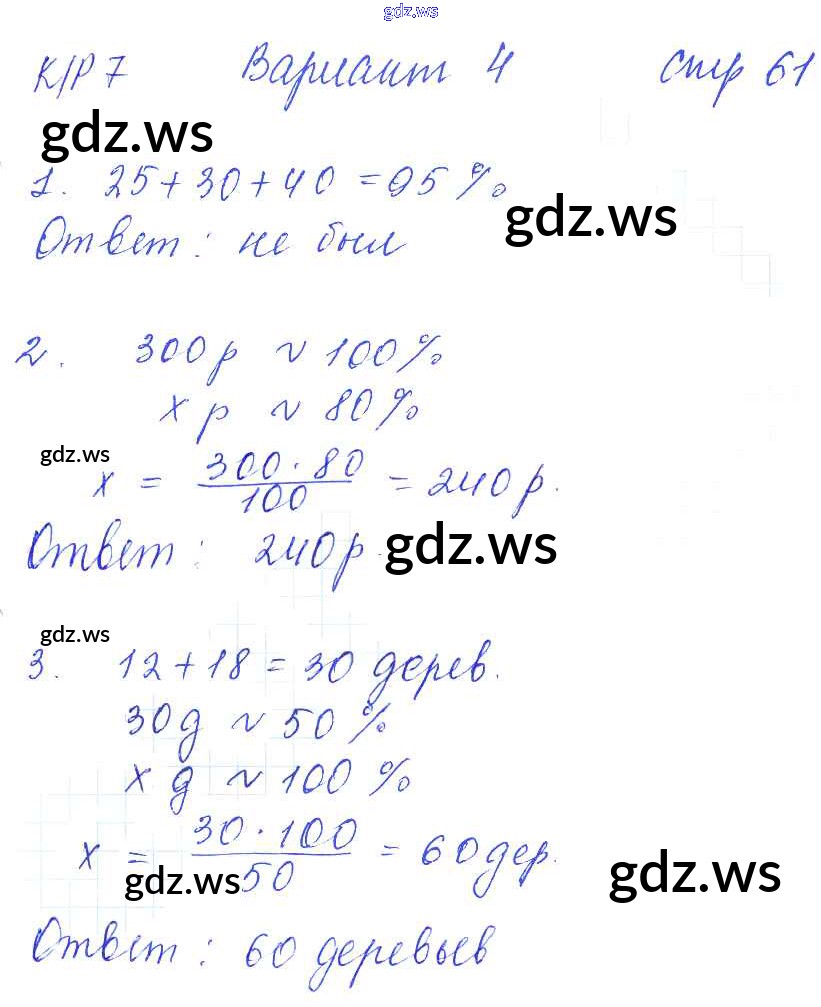 gdz.ws
К/Р 7 Вариант 4 стр 61
gdz.ws
1. 25 + 30 + 40 = 95 %
gdz.ws
Ответ: не был
2. 300 р ~ 100 %
х р ~ 80 %
gdz.ws
х = 300 · 80 / 100 = 240 р.
Ответ: 240 р.
gdz.ws
gdz.ws
3. 12 + 18 = 30 дерев.
30 д ~ 50 %
х д ~ 100 %
х = 30 · 100 / 50 = 60 дер.
gdz.ws
gdz.ws
Ответ: 60 деревьев